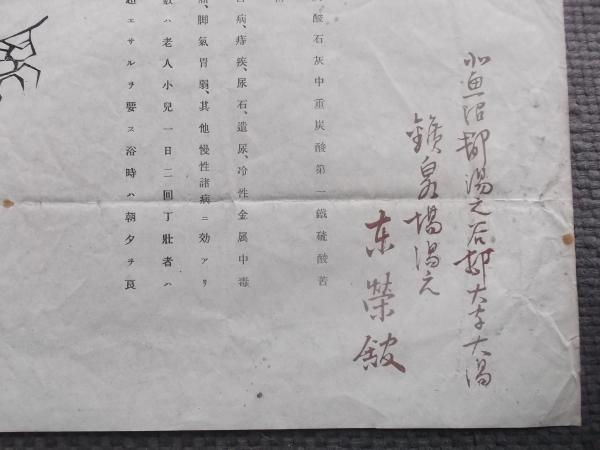 北魚沼郡湯之谷邨大字大湯
鑛泉場湯元
東榮舘
酸石灰中重炭酸第一鐵硫酸苦
病、痔疾、尿石、遺尿、冷性金属中毒
脚氣胃弱、其他慢性諸病ニ効アリ
數ハ老人小兒一日二回丁壯者ハ
超エサルヲ要ス浴時ハ朝夕ヲ良